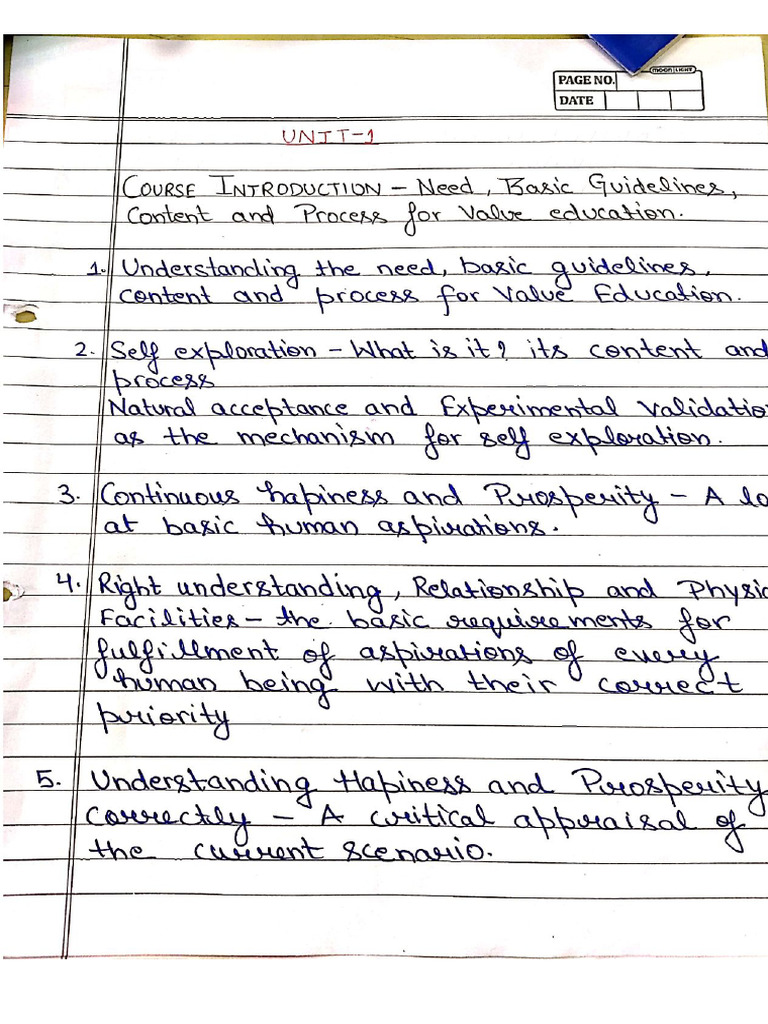 moon LIGHT
PAGE NO.
DATE
UNIT-1
COURSE INTRODUCTION - Need, Basic Guidelines,
Content and Process for Value education.
1. Understanding the need, basic guidelines,
content and process for Value Education.
2. Self exploration - What is it? its content and
process
Natural acceptance and Experimental Validatio
as the mechanism for self exploration.
3. Continuous hapiness and Prosperity - A lo
at basic human aspirations.
4. Right understanding, Relationship and Physic
Facilities - the basic requirements for
fulfillment of aspirations of every
human being with their correct
priority
5. Understanding Hapiness and Prosperity
correctly - A critical appraisal of
the current scenario.